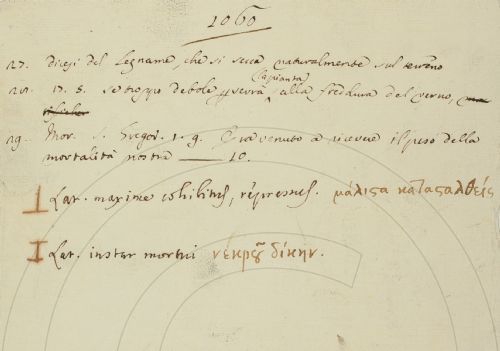 1060
27. dicesi del Legname, che si secca naturalmente sul terreno
28. 17. 5. se troppo debole
la pianta
alla freddura del verno,
29. Mor. S. Gregor. 1. 9. Era venuto a ricevere il peso della
mortalità nostra — 10.
I Lat. maxime cohibitus, repressus. μάλιςα καταςαλθείς
I Lat. instar mortui νέκρου δίκην.